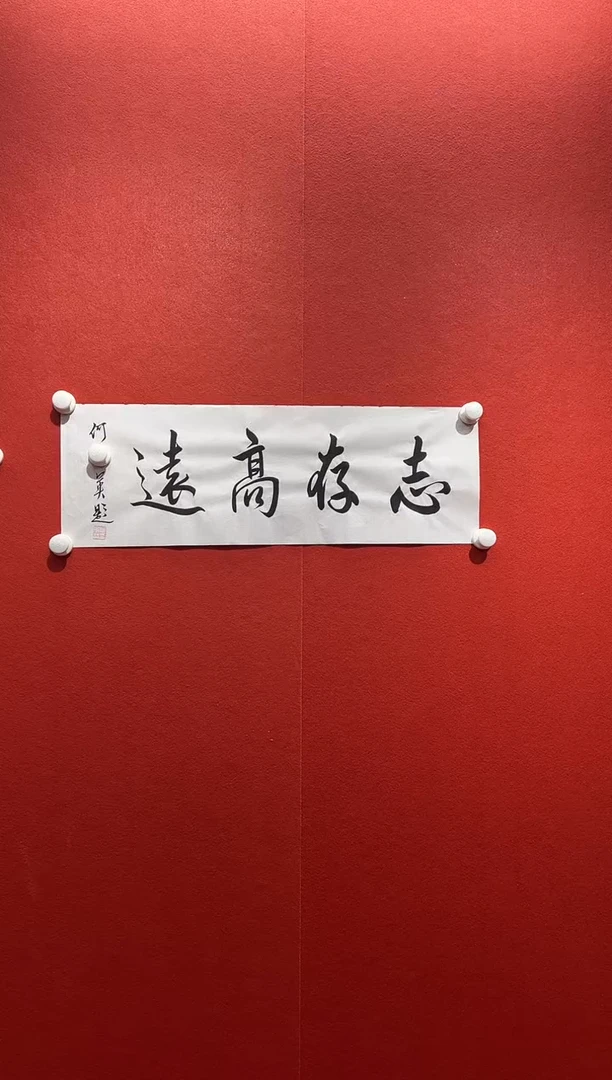 志存高遠
何
英題